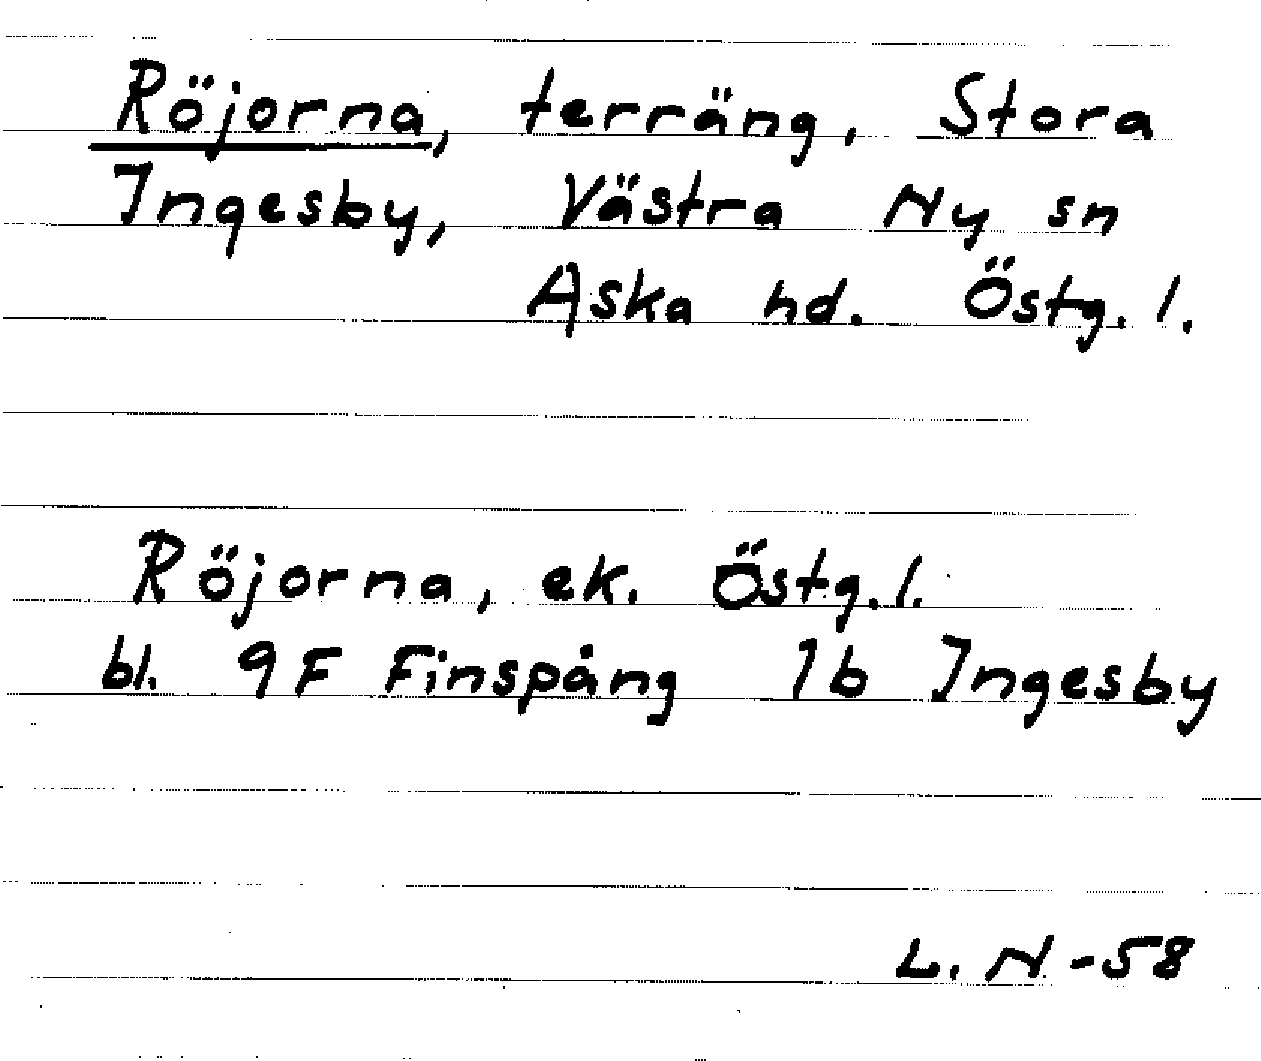 Röjorna, terräng, Stora
Ingesby, Västra Ny sn
Aska hd. Östg. l.
Röjorna, ek. Östg. l.
bl. 9F Finspång 1b Ingesby
L. N -58